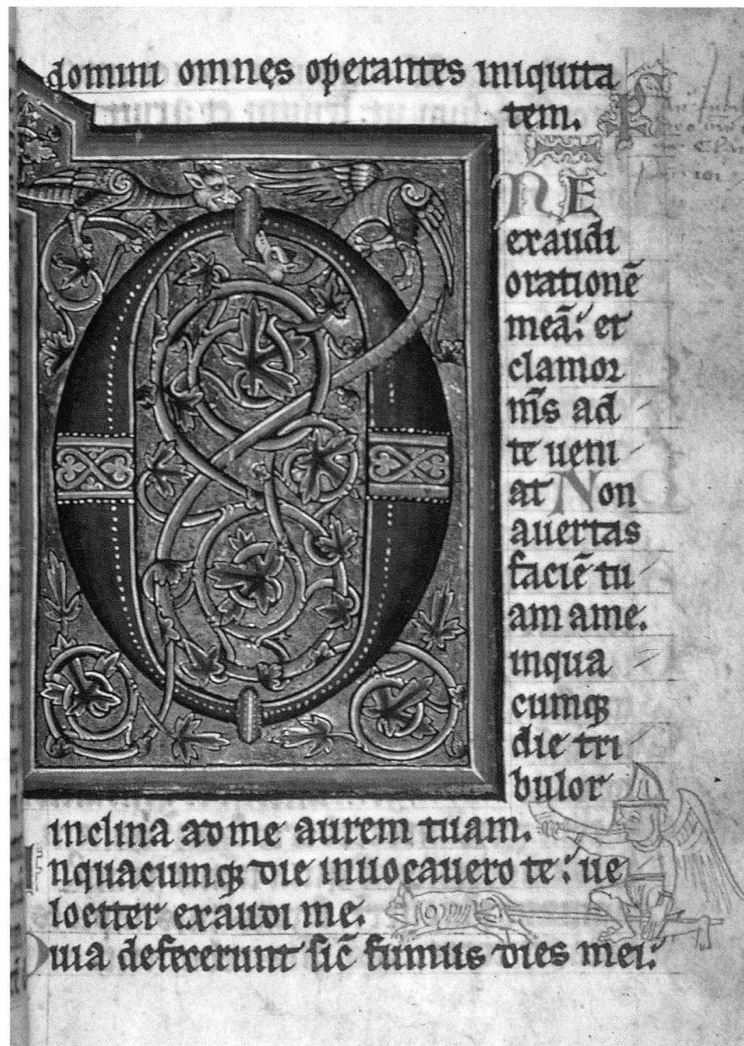 domini omnes operantes iniquita
tem.
D
NE
exaudi
orationē
meā: et
clamor
m̄s ad
te ueni
at Non
auertas
faciē tu
am ame.
inqua
cumq;
die tri
bulor
inclina adme aurem tuam.
Inquacumq; die inuocauero te: ue
lociter exaudi me.
Quia defecerunt sic̄ fumus dies mei: